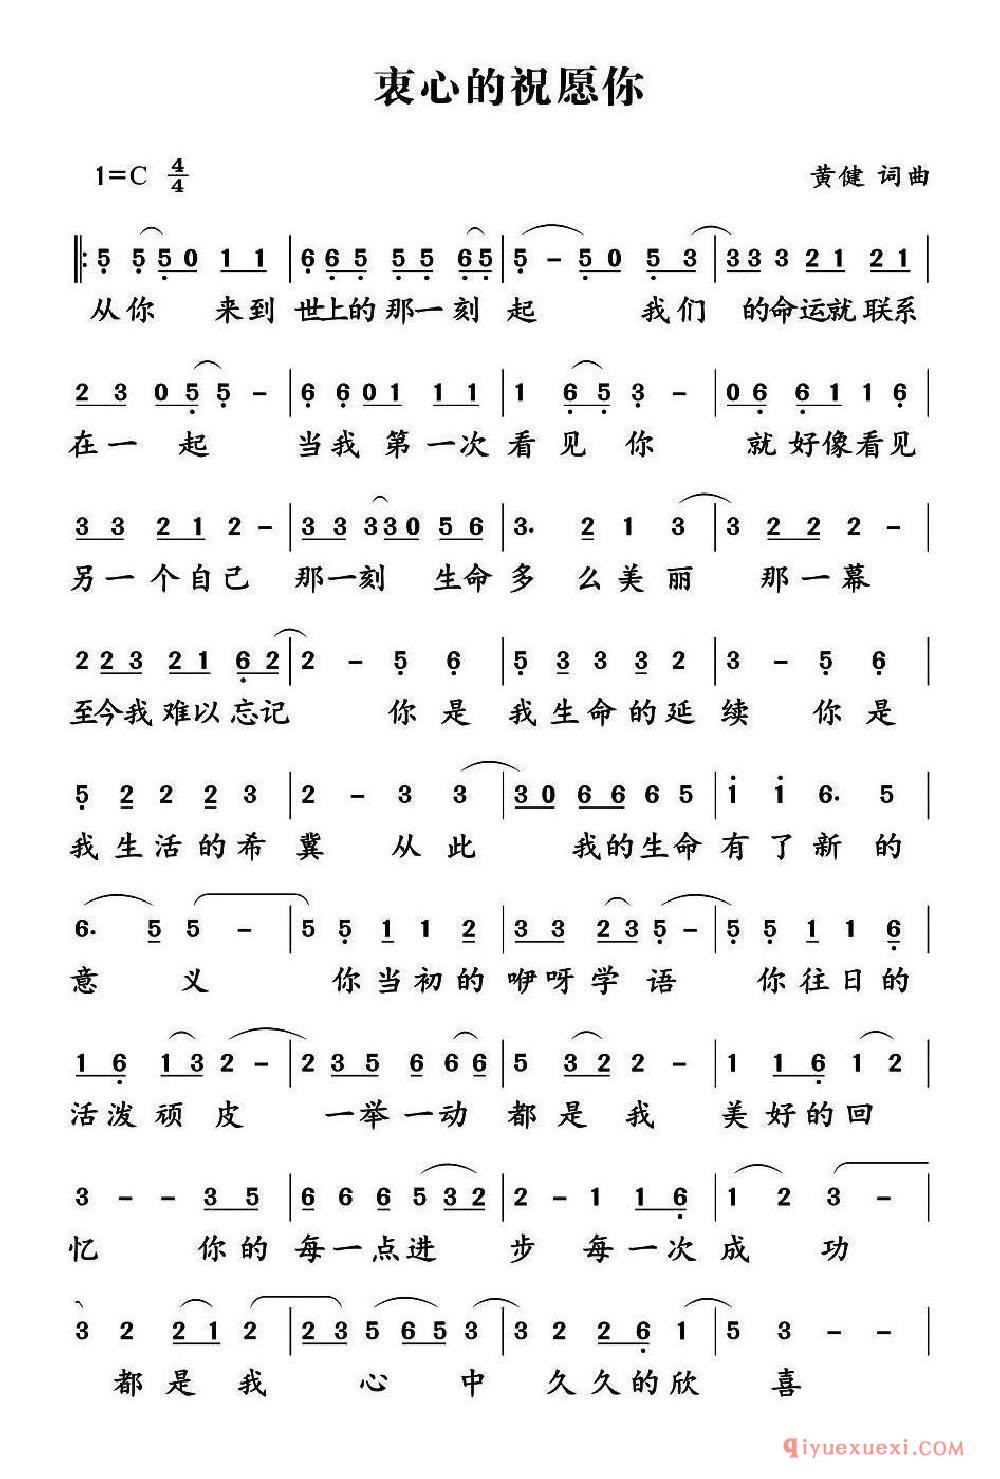 衷心的祝愿你
1=C 4/4 黄健 词曲
5 5 5 0 1 1 | 6 6 5 5 5 6 5 | 5 - 5 0 5 3 | 3 3 3 2 1 2 1 |
从你 来到 世上的那一刻 起 我们 的命运就联系
2 3 0 5 5 - | 6 6 0 1 1 1 | 1 6 5 3 - | 0 6 6 1 1 6 |
在一 起 当我 第一次看见 你 就好像看见
3 3 2 1 2 - | 3 3 3 3 0 5 6 | 3. 2 1 3 | 3 2 2 2 - |
另一个自己 那一刻 生命多 么美丽 那一幕
2 2 3 2 1 6 2 | 2 - 5 6 | 5 3 3 3 2 | 3 - 5 6 |
至今我难以忘记 你是 我生命的延续 你是
5 2 2 2 3 | 2 - 3 3 | 3 0 6 6 6 5 | i i 6. 5 |
我生活的希冀 从此 我的生命有了新的
6. 5 5 - | 5 5 1 1 2 | 3 3 2 3 5 - | 5 5 1 1 6 |
意 义 你当初的咿呀学语 你往日的
1 6 1 3 2 - | 2 3 5 6 6 6 | 5 3 2 2 - | 1 1 6 1 2 |
活泼顽皮 一举一动都是我 美好的回
3 - - 3 5 | 6 6 6 5 3 2 | 2 - 1 1 6 | 1 2 3 - |
忆 你的每一点进 步 每一次成 功
3 2 2 1 2 | 2 3 5 6 5 3 | 3 2 2 6 1 | 5 3 - - |
都是我 心 中 久久的欣 喜
qiyuexuexi.COM